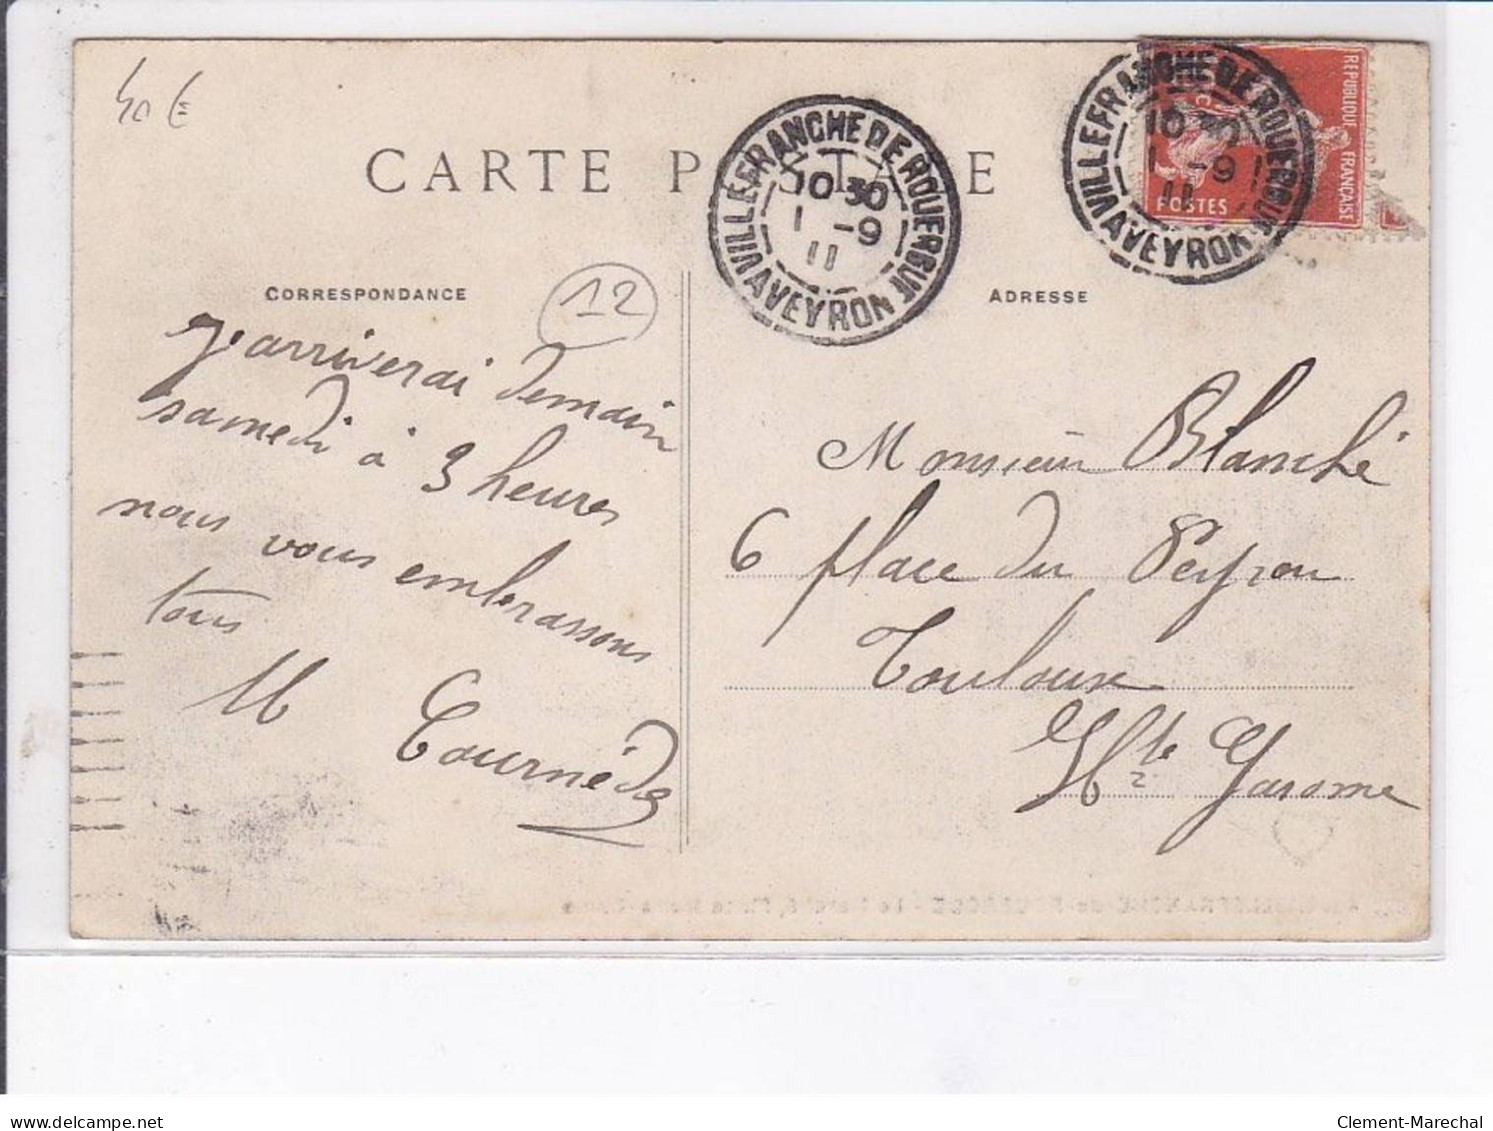 40 €
CARTE POSTALE
VILLEFRANCHE DE ROUERGUE
10 30
1 -9
11
AVEYRON
VILLEFRANCHE DE ROUERGUE
10 30
1 -9
11
AVEYRON
REPUBLIQUE FRANÇAISE
POSTES
CORRESPONDANCE
12
ADRESSE
J'arriverai demain
samedi à 3 heures
nous vous embrassons
tous
M Tournédé
Monsieur Blanché
6 place du Peyrou
Toulouse
Hte Garonne
delcampe.net
Clement-Marechal